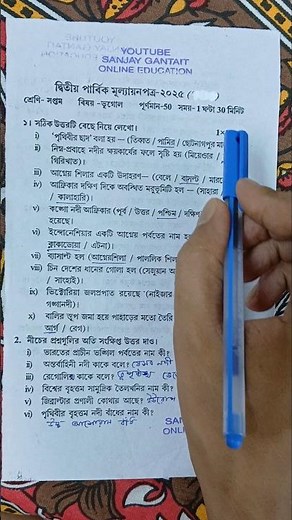 YOUTUBE
SANJAY GANTAIT
ONLINE EDUCATION
দ্বিতীয় পার্বিক মূল্যায়নপত্র-২০২৫
শ্রেণি- সপ্তম বিষয় -ভূগোল পূর্ণমান-50 সময়-1 ঘন্টা 30 মিনিট
১। সঠিক উত্তরটি বেছে নিয়ে লেখো। 1×
i) 'পৃথিবীর ছাদ' বলা হয় — (তিব্বত / পামির / ছোটনাগপুর
ii) নিম্ন-প্রবাহে নদীর ক্ষয়কার্যের ফলে সৃষ্টি হয় (মিয়েন্ডার /
গিরিখাত)।
iii) আগ্নেয় শিলার একটি উদাহরণ— (বেলে / ব্যাসল্ট /
iv) আফ্রিকার দক্ষিণ দিকে অবস্থিত মরুভূমিটি হল — (সাহারা
/ কালাহারি)।
v) কঙ্গো নদী আফ্রিকার (পূর্ব / উত্তর / পশ্চিম /
হয়েছে।
vi) ইন্দোনেশিয়ার একটি আগ্নেয় পর্বতের নাম
ক্রাকাতোয়া / এটনা)।
vii) ব্যাসল্ট হল (আগ্নেয়শিলা / পাললিক
viii) চিন দেশের ধানের গোলা হল (সেজুয়ান
/ সাংহাই)।
ix) ভিক্টোরিয়া জলপ্রপাত রয়েছে (নাইজার
গঙ্গানদী)।
x) বালির স্তূপ জমা হয়ে পাহাড়ের মতো তৈরি
আর্গ / রেগ)।
2. নীচের প্রশ্নগুলির অতি সংক্ষিপ্ত উত্তর দাও।
i) ভারতের প্রাচীন ভঙ্গিল পর্বতের নাম কী?
ii) অন্তর্বাহিনী নদী কাকে বলে?
iii) রেগোলিথ কাকে বলে?
iv) বিশ্বের বৃহত্তম সামুদ্রিক তৈলখনির নাম কী?
v) জিব্রাল্টার প্রণালী কোথায় আছে?
vi) পৃথিবীর বৃহত্তম নদী বাঁধের নাম কী?